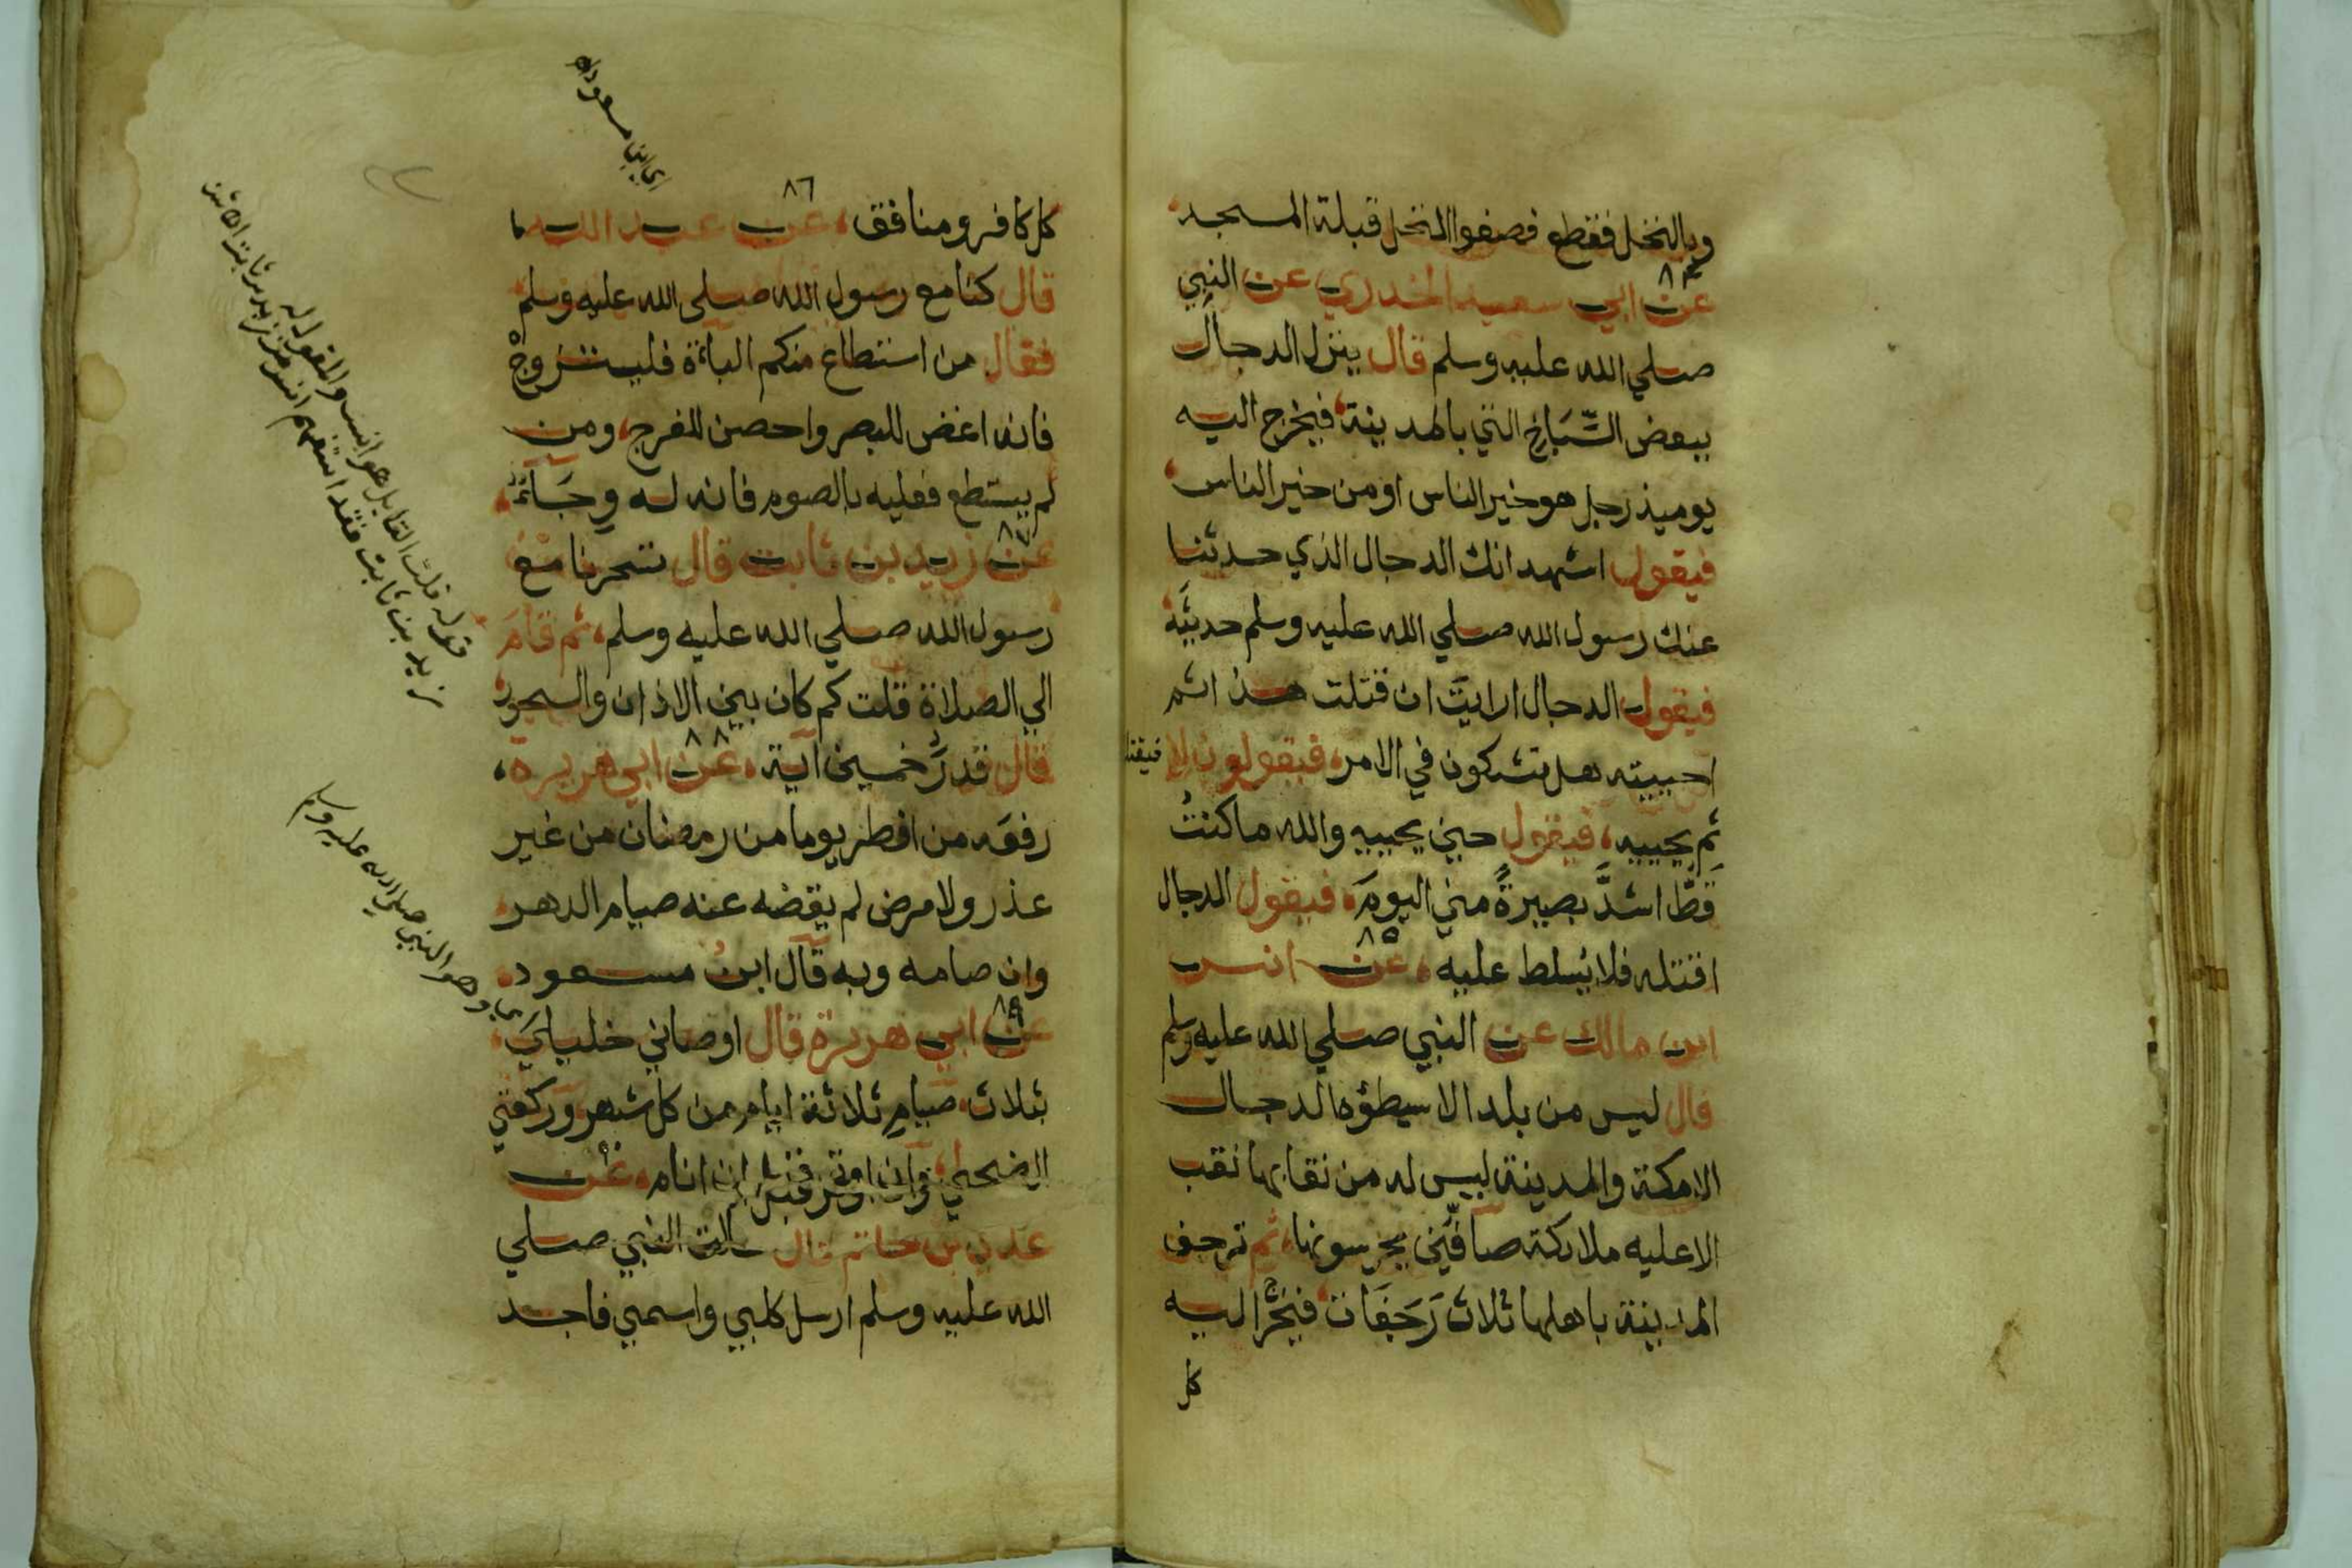 وبالنخل فقطع فصفوا النخل قبلة المسجد
٨٤
عن ابي سعيد الخدري عن النبي
صلي الله عليه وسلم قال ينزل الدجال
ببعض السِّبَاخ التي بالمدينة فيخرج اليه
يوميذ رجل هو خير الناس او من خير الناس
فيقول اشهد انك الدجال الذي حدثنا
عنك رسول الله صلي الله عليه وسلم حديثَه
فيقول الدجال ارايتَ ان قتلت هذا ثم
احييته هل تشكون في الامر فيقولون لا فيقتله
ثم يحييه فيقول حين يحييه والله ما كنتُ
قطُّ اشدَّ بصيرةً مني اليومَ فيقول الدجال
٨٥
اقتله فلا يُسلط عليه عن انس
ابن مالك عن النبي صلي الله عليه وسلم
قال ليس من بلد الا سيطؤه الدجال
الا مكة والمدينة ليس له من نقابها نقب
الا عليه ملايكة صافّين يحرسونها ثم ترجف
المدينة باهلها ثلاث رَجَفَات فيخرُج اليه
كل
اي ابن مسعود اه
٨٦
كل كافر ومنافق عن عبد الله
قال كنا مع رسول الله صلي الله عليه وسلم
فقال من استطاع منكم الباءة فليتزوجْ
فانه اغض للبصر واحصن للفرج ومن
لم يستطع فعليه بالصوم فانه له وِجَاءٌ
٨٧
عن زيد بن ثابت قال تسحرنا مع
رسول الله صلي الله عليه وسلم ثم قامَ
الي الصلاة قلت كم كان بين الاذان والسحور
٨٨
قال قدرَ خمسين اية عن ابي هريرة
رفعَه من افطر يوما من رمضان من غير
عذر ولا مرض لم يقضه عنه صيام الدهر
وان صامه وبه قال ابنُ مسعود
٨٩
عن ابي هريرة قال اوصاني خليلي
بثلاث صيامِ ثلاثة ايام من كل شهر وركعتي
الضحي وان اوتر قبل ان انام عن
عدي بن حاتم قال سالت النبي صلي
الله عليه وسلم ارسل كلبي واسمي فاجد
قوله قلت القايل هو انس والمقول له
زيد بن ثابت فقد استفهم انس من زيد بن ثابت
وهو النبي صلي الله عليه وسلم